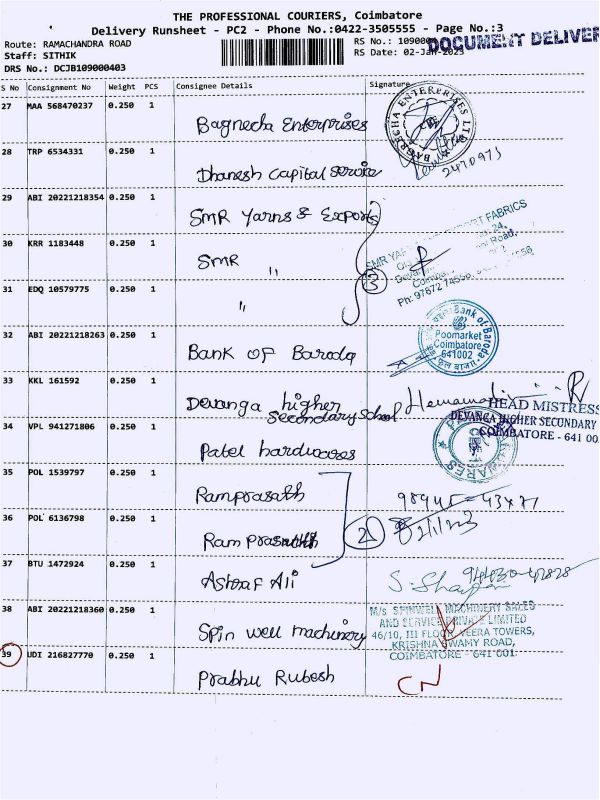 THE PROFESSIONAL COURIERS, Coimbatore
Delivery Runsheet - PC2 - Phone No.:0422-3505555 - Page No.:3
Route: RAMACHANDRA ROAD
RS No.: 109000
DOCUMENT DELIVER
Staff: SITHIK
RS Date: 02-Jan-2023
DRS No.: DCJB109000403
S No Consignment No Weight PCS Consignee Details Signature
27 MAA 568470237 0.250 1
Bagrecha Enterprises
BAGRECHA ENTERPRISES LTD
28 TRP 6534331 0.250 1
2470973
Dhanesh Capital Service
29 ABI 20221218354 0.250 1
SMR Yarns & Exports
30 KRR 1183448 0.250 1
SMR "
31 EDQ 10579775 0.250 1
"
3
SMR YA FABRICS
Ph: 97672 74550
32 ABI 20221218263 0.250 1
Bank of Baroda
Bank of Baroda
Poomarket
Coimbatore
641002
33 KKL 161592 0.250 1
Devanga higher
Secondary School
Hemama
HEAD MISTRESS
DEVANGA HIGHER SECONDARY
COIMBATORE - 641 00
34 VPL 941271806 0.250 1
Patel hardwares
35 POL 1539797 0.250 1
Ramprasath
36 POL 6136798 0.250 1
Ram Prasath
2
2/1/23
37 BTU 1472924 0.250 1
Ashraf Ali
38 ABI 20221218360 0.250 1
Spin well machinery
M/s. SPINWELL MACHINERY SALES
AND SERVICE PRIVATE LIMITED
46/10, III FLOOR, VEERA TOWERS,
KRISHNASWAMY ROAD,
COIMBATORE - 641 001.
39 UDI 216827770 0.250 1
Prabhu Rubesh
CN